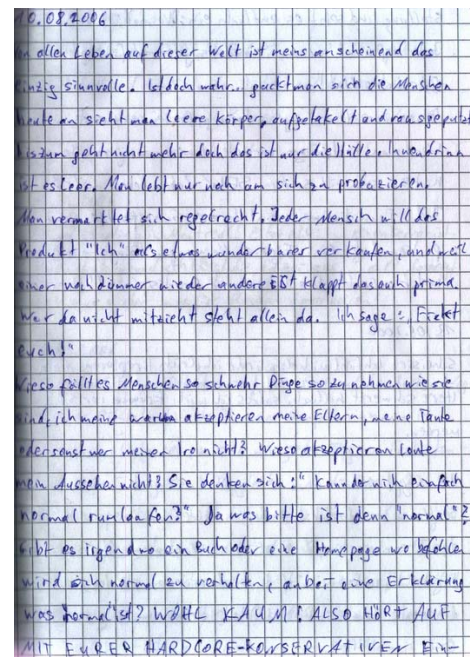 10.08.2006
von allen Leben auf dieser Welt ist meins anscheinend das
einzig sinnvolle. Ist doch wahr.. guckt man sich die Menshen
heute an sieht man leere Körper, aufgetakelt und rausgeputzt
bis zum geht nicht mehr doch das ist nur die Hülle. Innendrinn
ist es leer. Man lebt nur noch um sich zu
Man vermarktet sich regelrecht. Jeder Mensch will das
Produkt "Ich" als etwas wunderbares verkaufen, und weil
einer noch dümmer wie der andere ISt klappt das auch prima.
Wer da nicht mitzieht steht allein da. Ich sage:
euch!"
Wieso fällt es Menschen so schwehr Dinge so zu nehmen wie sie
sind, ich meine warum akzeptieren meine Eltern, meine Tante
oder sonst wer meinen Iro nicht? Wieso akzeptieren Leute
mein Aussehen nicht? Sie denken sich: "Kann der nich einfach
normal rumlaufen?" Ja was bitte ist denn "normal"?
Gibt es irgendwo ein Buch oder eine Homepage wo befohlen
wird sich normal zu verhalten, anbei eine Erklärung
was normal ist? WOHL KAUM! ALSO HÖRT AUF
MIT EURER HARDCORE-KONSERVATIVEN EIN-